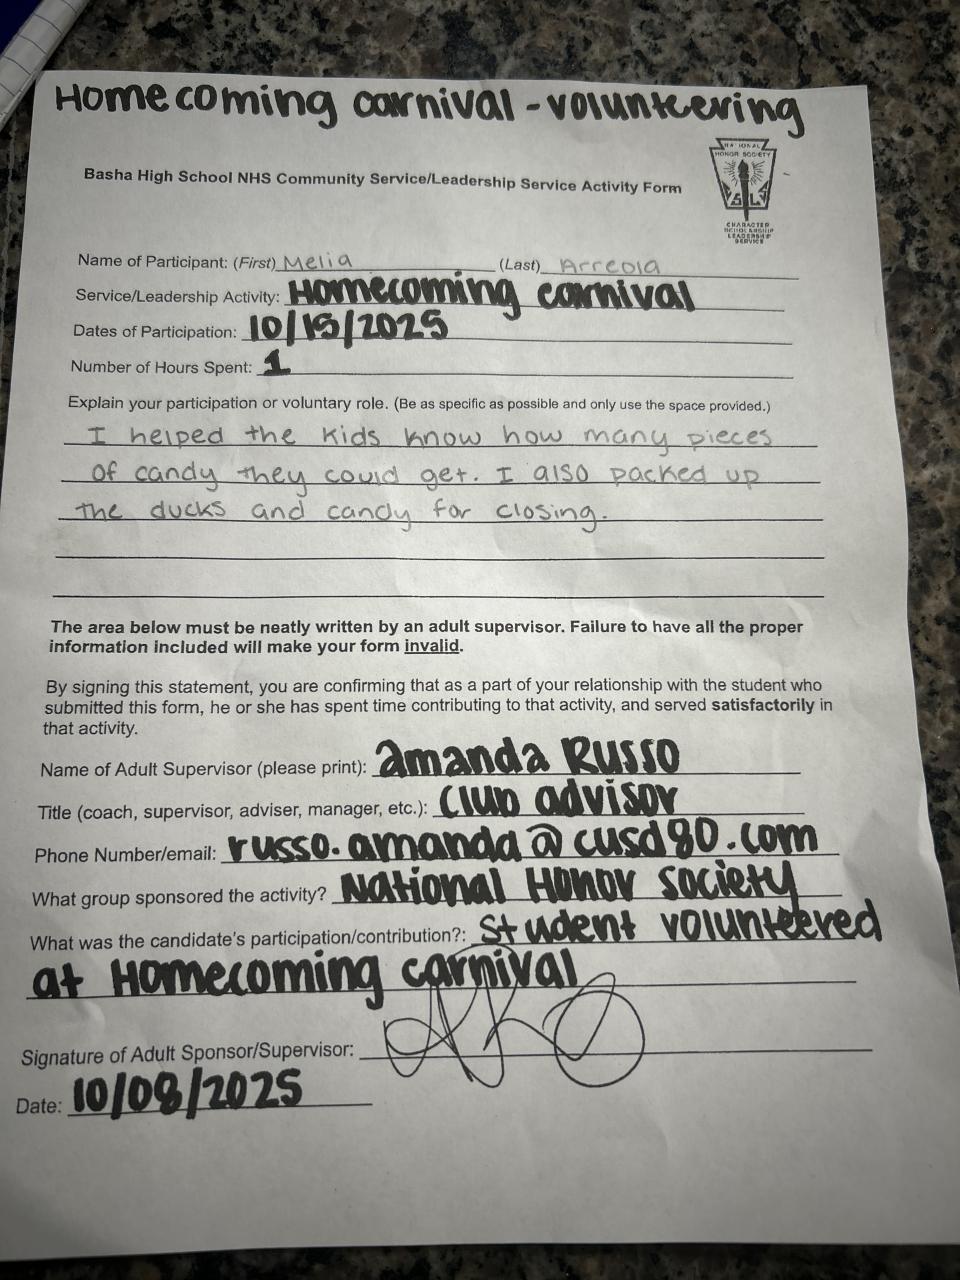 Homecoming carnival - volunteering
NATIONAL
HONOR SOCIETY
CHARACTER
SCHOLARSHIP
LEADERSHIP
SERVICE
Basha High School NHS Community Service/Leadership Service Activity Form
Name of Participant: (First) Melia (Last) Arreola
Service/Leadership Activity: Homecoming carnival
Dates of Participation: 10/15/2025
Number of Hours Spent: 1
Explain your participation or voluntary role. (Be as specific as possible and only use the space provided.)
I helped the kids know how many pieces
of candy they could get. I also packed up
the ducks and candy for closing.
The area below must be neatly written by an adult supervisor. Failure to have all the proper
information included will make your form invalid.
By signing this statement, you are confirming that as a part of your relationship with the student who
submitted this form, he or she has spent time contributing to that activity, and served satisfactorily in
that activity.
Name of Adult Supervisor (please print): amanda Russo
Title (coach, supervisor, adviser, manager, etc.): Club advisor
Phone Number/email: russo.amanda@cusd80.com
What group sponsored the activity? National Honor Society
What was the candidate's participation/contribution?: Student volunteered
at Homecoming carnival
Signature of Adult Sponsor/Supervisor:
Date: 10/08/2025